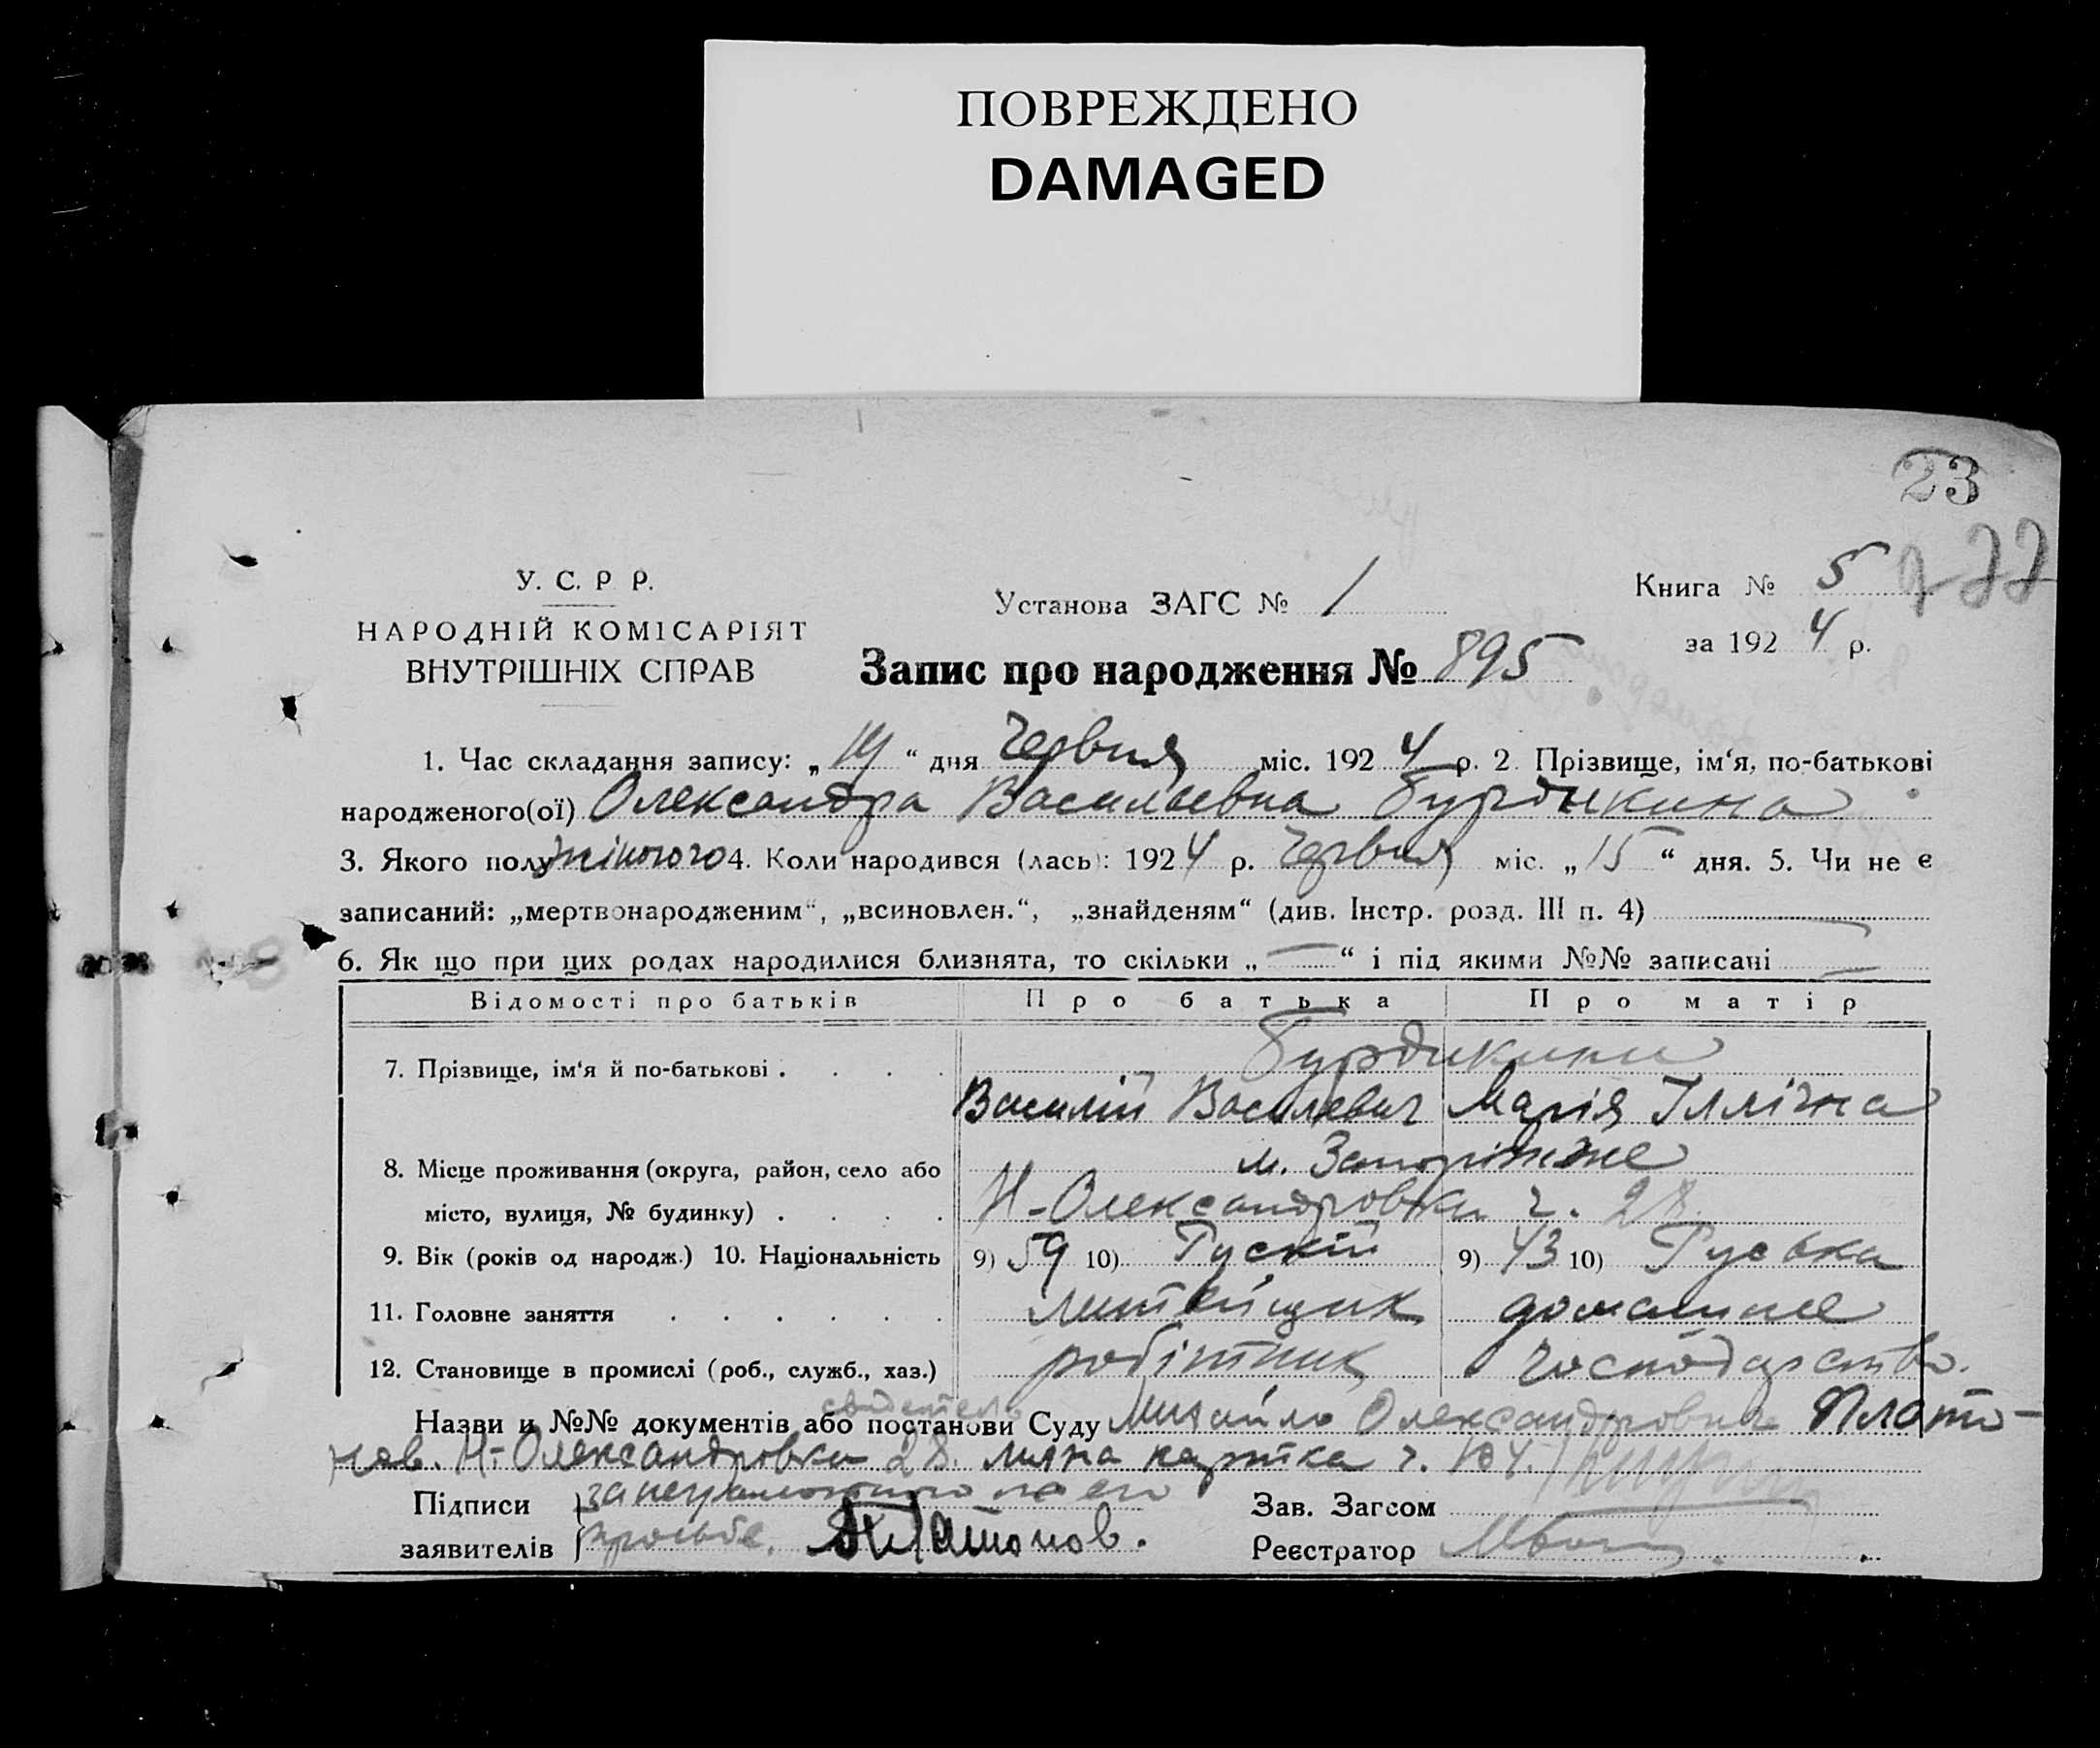 ПОВРЕЖДЕНО
DAMAGED
23
277
У. С. Р Р.
НАРОДНІЙ КОМІСАРІЯТ
ВНУТРІШНІХ СПРАВ
Установа ЗАГС № 1
Книга № 5
за 1924 р.
Запис про народження № 895
1. Час складання запису: „19“ дня Червня міс. 1924 р. 2. Прізвище, ім‘я, по-батькові
народженого(ої) Олександра Васильевна Бурдикина
3. Якого полу жіночого 4. Коли народився (лась): 1924 р. Червня міс. „15“ дня. 5. Чи не є
записаний: „мертвонародженим“, „всиновлен.“, „знайденям“ (див. Інстр. розд. III п. 4)
6. Як що при цих родах народилися близнята, то скільки „—“ і під якими №№ записані —
Відомості про батьків Про батька Про матір
7. Прізвище, ім‘я й по-батькові . . . . Бурдикини
Василій Василевич Марія Іллічна
8. Місце проживання (округа, район, село або м. Запоріжже
місто, вулиця, № будинку) . . . . Н-Олександровка ч. 28.
9. Вік (років од народж.) 10. Національність 9) 59 10) Рускій 9) 43 10) Руська
11. Головне заняття . . . . . . литейщик домашне
12. Становище в промислі (роб., служб., хаз.) робітник господарство.
свидетель
Назви и №№ документів або постанови Суду Михайло Олександрович Плато-
нов. Н-Олександровка 28. личка картка ч. 104.
Підписи за неграмотного по его Зав. Загсом
заявителів прозьбе. Платонов. Реєстратор